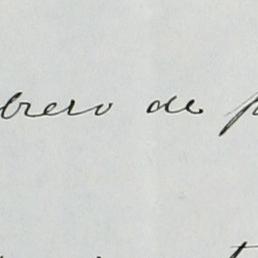 brero de